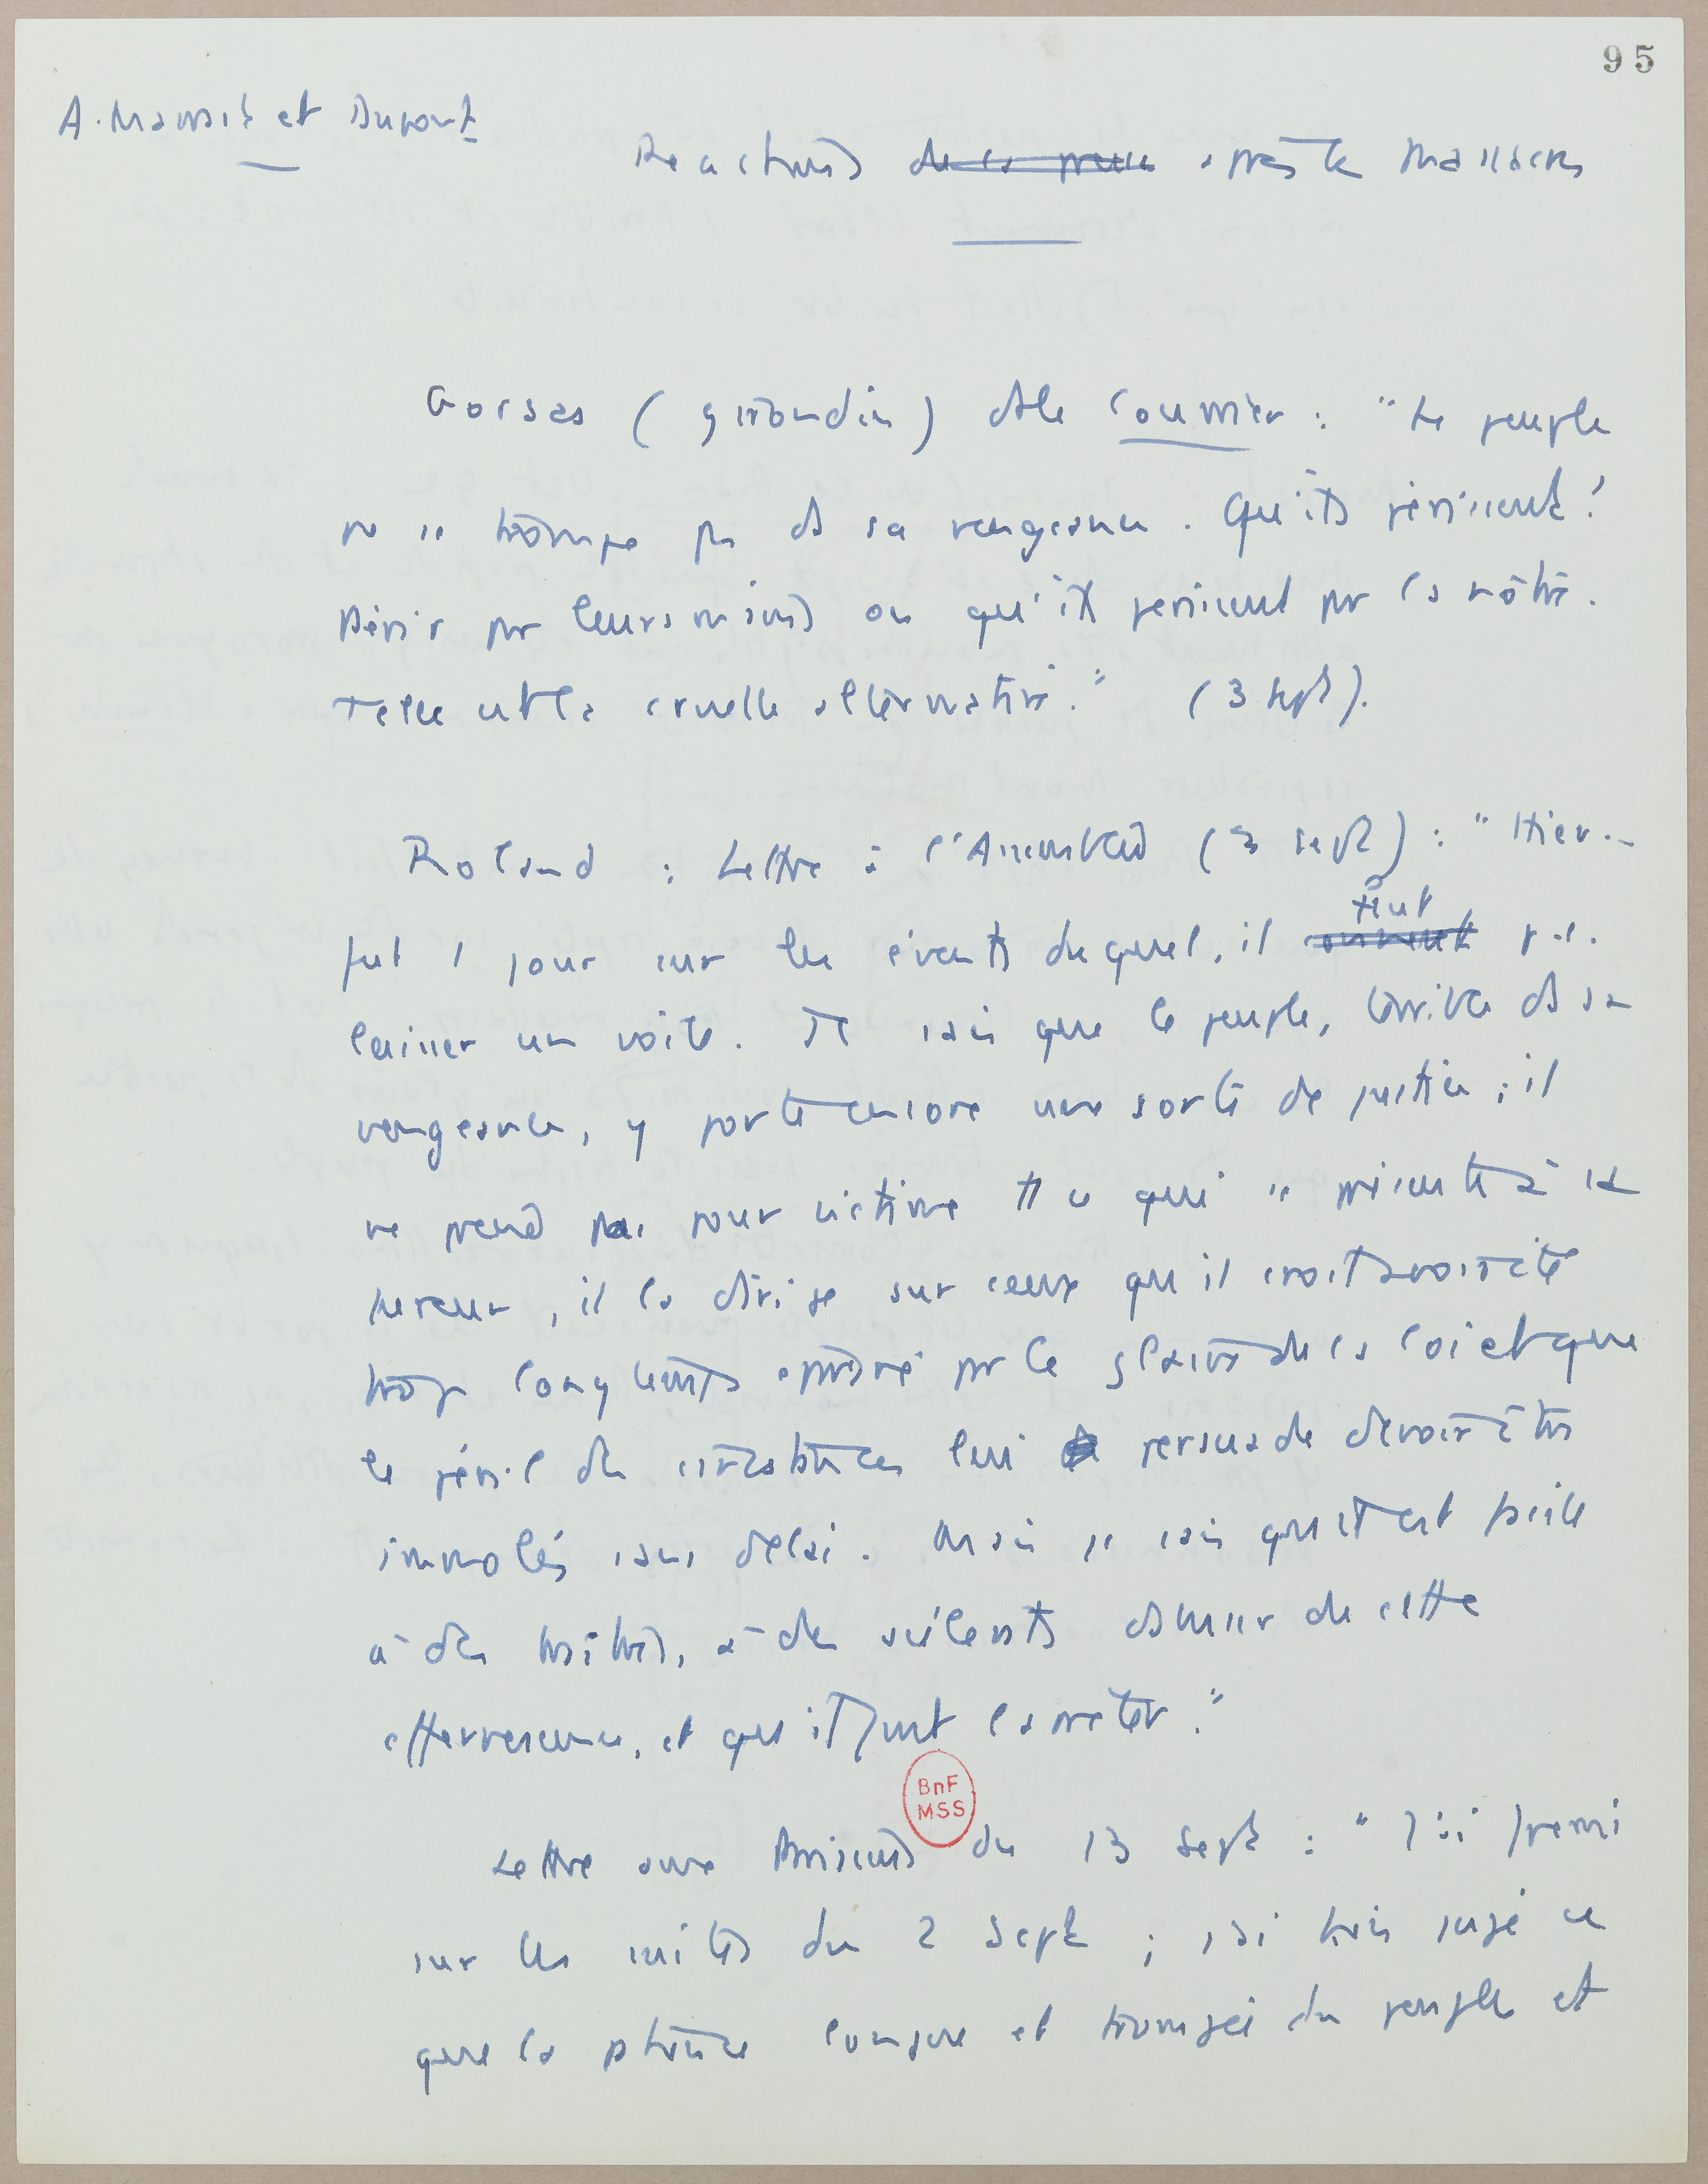 95
A. Marrast et Dupont
Reactions ~~de la presse~~ après les Massacres
Gorsas (girondin) ds le Courrier : "Le peuple
ne se trompe pas ds sa vengeance. Qu'ils périssent !
Périr par leurs mains ou qu'ils périssent par la nôtre.
Telle est la cruelle alternative." (3 sept).
Roland : Lettre à l'Assemblée (3 sept) : "Hier..
fut 1 jour sur les évents duquel, il ~~convient~~ faut p.ê.
laisser un voile. Je sais que le peuple, terrible ds sa
vengeance, y porte encore une sorte de justice ; il
ne prend pas pour victime tt ce qui se présente à sa
fureur, il la dirige sur ceux qu'il croit avoir été
trop longtemps épargné par le glaive de la loi et que
le péril des circonstances lui persuade devoir être
immolés sans délai. Mais je sais qu'il est facile
à des traîtres, à des scélérats d'abuser de cette
effervescence, et qu'il faut l'arrêter."
BnF
MSS
Lettre aux Parisiens du 13 sept : "J'ai frémi
sur les suites du 2 sept ; j'ai bien jugé ce
que la patience longue et trompée du peuple et